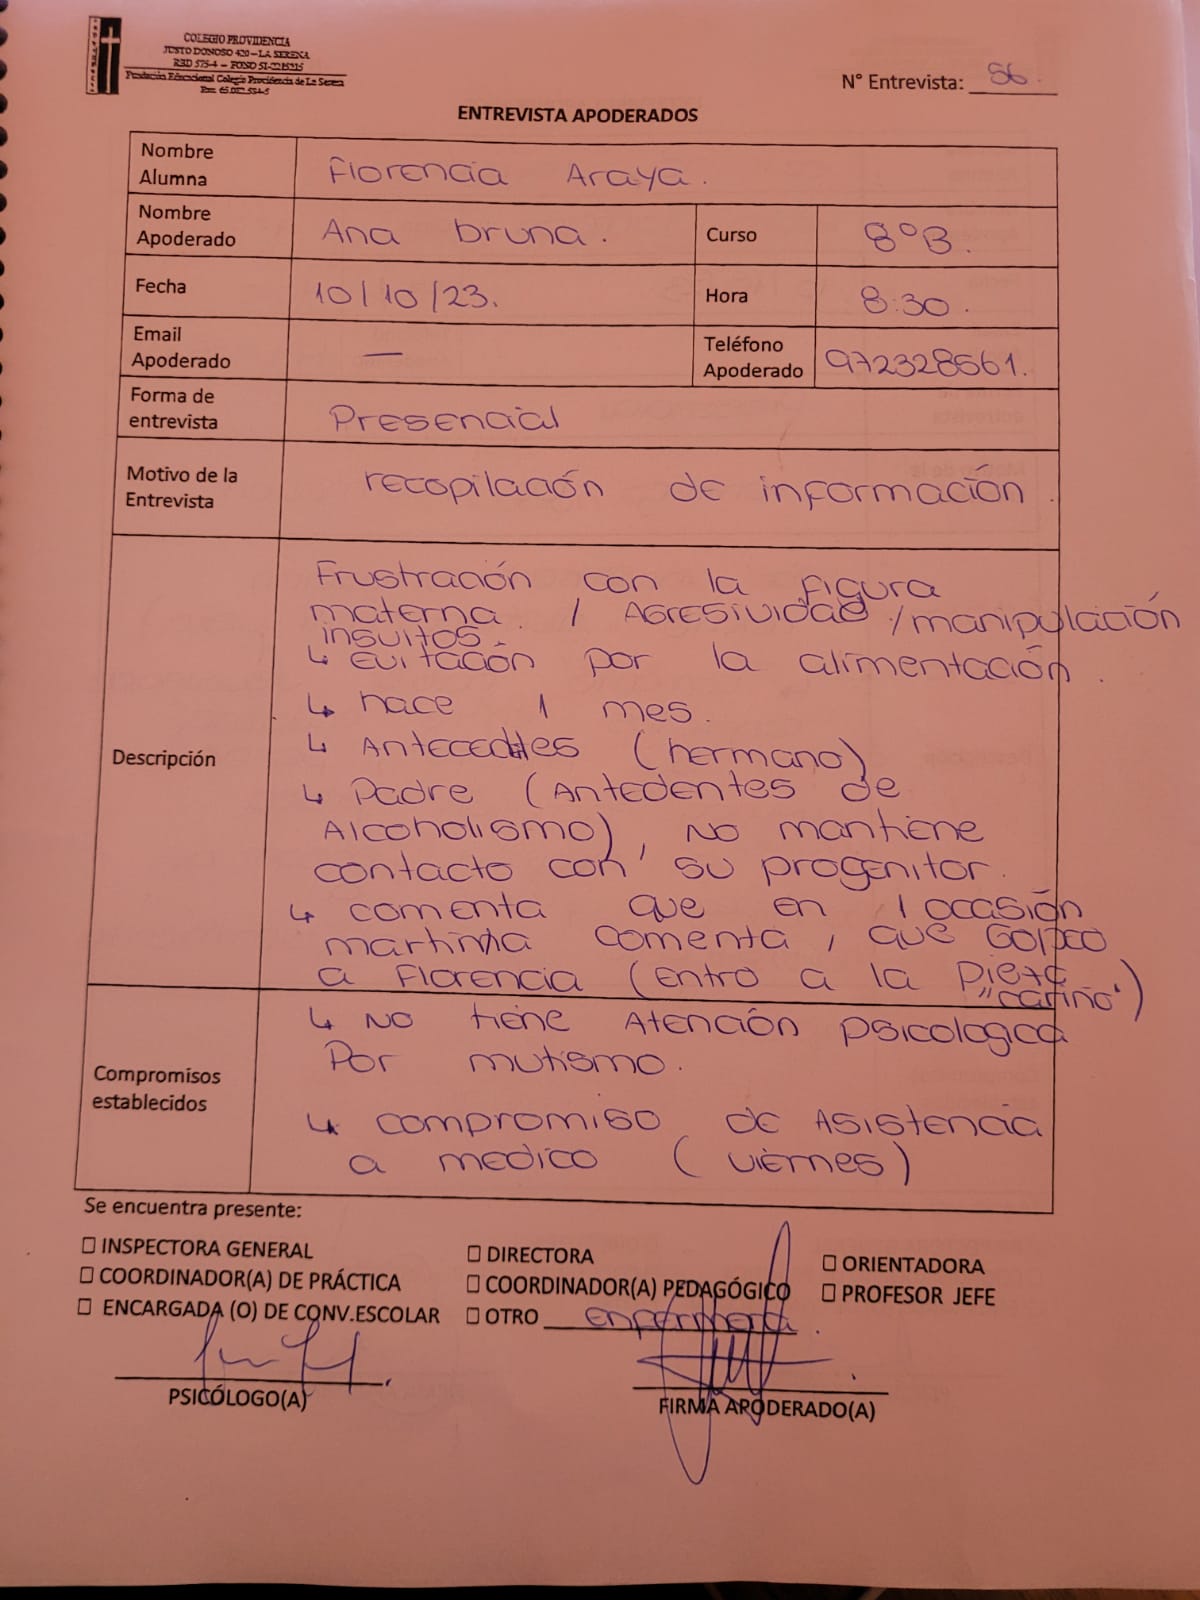 COLEGIO PROVIDENCIA
JUSTO DONOSO 420 – LA SERENA
RBD 575-4 – FONO 51-2215215
Fundación Educacional Colegio Providencia de La Serena
N° Entrevista: 56.
ENTREVISTA APODERADOS
Nombre Alumna Florencia Araya.
Nombre Apoderado Ana bruna. Curso 8°B.
Fecha 10/10/23. Hora 8:30.
Email Apoderado — Teléfono Apoderado 972328561.
Forma de entrevista Presencial
Motivo de la Entrevista recopilación de información.
Descripción
Frustración con la figura
materna. / Agresividad /manipulación
insultos.
↳ Evitación por la alimentación.
↳ hace 1 mes.
↳ Antecedtes (hermano)
↳ Padre (Antedentes de
Alcoholismo), no mantiene
contacto con su progenitor.
↳ comenta que en 1 ocasión
martinna comenta, que Golpeo
a Florencia (Entro a la pieza
"cariño")
Compromisos establecidos
↳ No tiene Atención psicologica
Por mutismo.
↳ compromiso de Asistencia
a medico (viernes)
Se encuentra presente:
☐ INSPECTORA GENERAL ☐ DIRECTORA ☐ ORIENTADORA
☐ COORDINADOR(A) DE PRÁCTICA ☐ COORDINADOR(A) PEDAGÓGICO ☐ PROFESOR JEFE
☐ ENCARGADA (O) DE CONV.ESCOLAR ☐ OTRO enfermera.
PSICÓLOGO(A) FIRMA APODERADO(A)